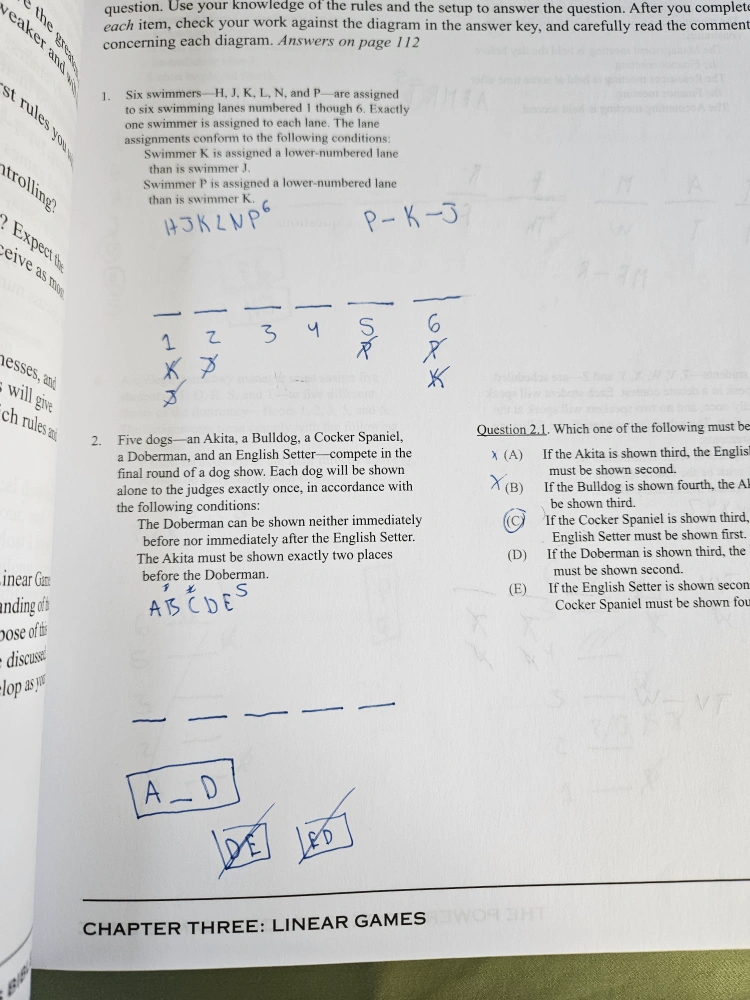 question. Use your knowledge of the rules and the setup to answer the question. After you complete
each item, check your work against the diagram in the answer key, and carefully read the comment
concerning each diagram. Answers on page 112
the
weaker and
rst rules you
ntrolling?
? Expect the
ceive as mos
nesses, and
s will give
ch rules and
inear Game
anding of th
pose of this
e discussed
elop as you
1. Six swimmers—H, J, K, L, N, and P—are assigned
to six swimming lanes numbered 1 though 6. Exactly
one swimmer is assigned to each lane. The lane
assignments conform to the following conditions:
Swimmer K is assigned a lower-numbered lane
than is swimmer J.
Swimmer P is assigned a lower-numbered lane
than is swimmer K.
HJKLNP6 P-K-J
1 2 3 4 5 6
K J P P
J K
2. Five dogs—an Akita, a Bulldog, a Cocker Spaniel,
a Doberman, and an English Setter—compete in the
final round of a dog show. Each dog will be shown
alone to the judges exactly once, in accordance with
the following conditions:
The Doberman can be shown neither immediately
before nor immediately after the English Setter.
The Akita must be shown exactly two places
before the Doberman.
ABCDE5
A _ D
DE ED
Question 2.1. Which one of the following must be
x (A) If the Akita is shown third, the English
must be shown second.
X (B) If the Bulldog is shown fourth, the Ak
be shown third.
(C) If the Cocker Spaniel is shown third,
English Setter must be shown first.
(D) If the Doberman is shown third, the
must be shown second.
(E) If the English Setter is shown secon
Cocker Spaniel must be shown fou
CHAPTER THREE: LINEAR GAMES